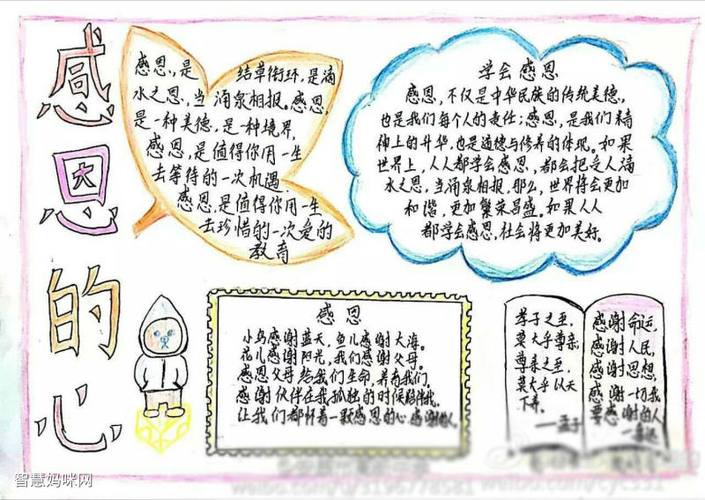 感恩的心
感恩,是 结草衔环,是滴
水之恩,当涌泉相报。感恩,
是一种美德,是一种境界,
感恩,是值得你用一生
去等待的一次机遇.
感恩,是值得你用一生
去珍惜的一次爱的
教育
学会感恩
感恩,不仅是中华民族的传统美德,
也是我们每个人的责任;感恩,是我们精
神上的升华,也是道德与修养的体现。如果
世界上,人人都学会感恩,都会把受人滴
水之恩,当涌泉相报,那么,世界将会更加
和谐,更加繁荣昌盛。如果人人
都学会感恩,社会将更加美好。
感恩
小鸟感谢蓝天,鱼儿感谢大海。
花儿感谢阳光,我们感谢父母。
感恩父母给我们生命,养育我们,
感谢伙伴在我孤独的时候陪伴我。
让我们都怀着一颗感恩的心感谢他人
孝子之至,
莫大乎尊亲;
尊亲之至,
莫大乎以天
下养。
——孟子
感谢命运,
感谢人民,
感谢思想,
感谢一切我
要感谢的人
智慧妈咪网